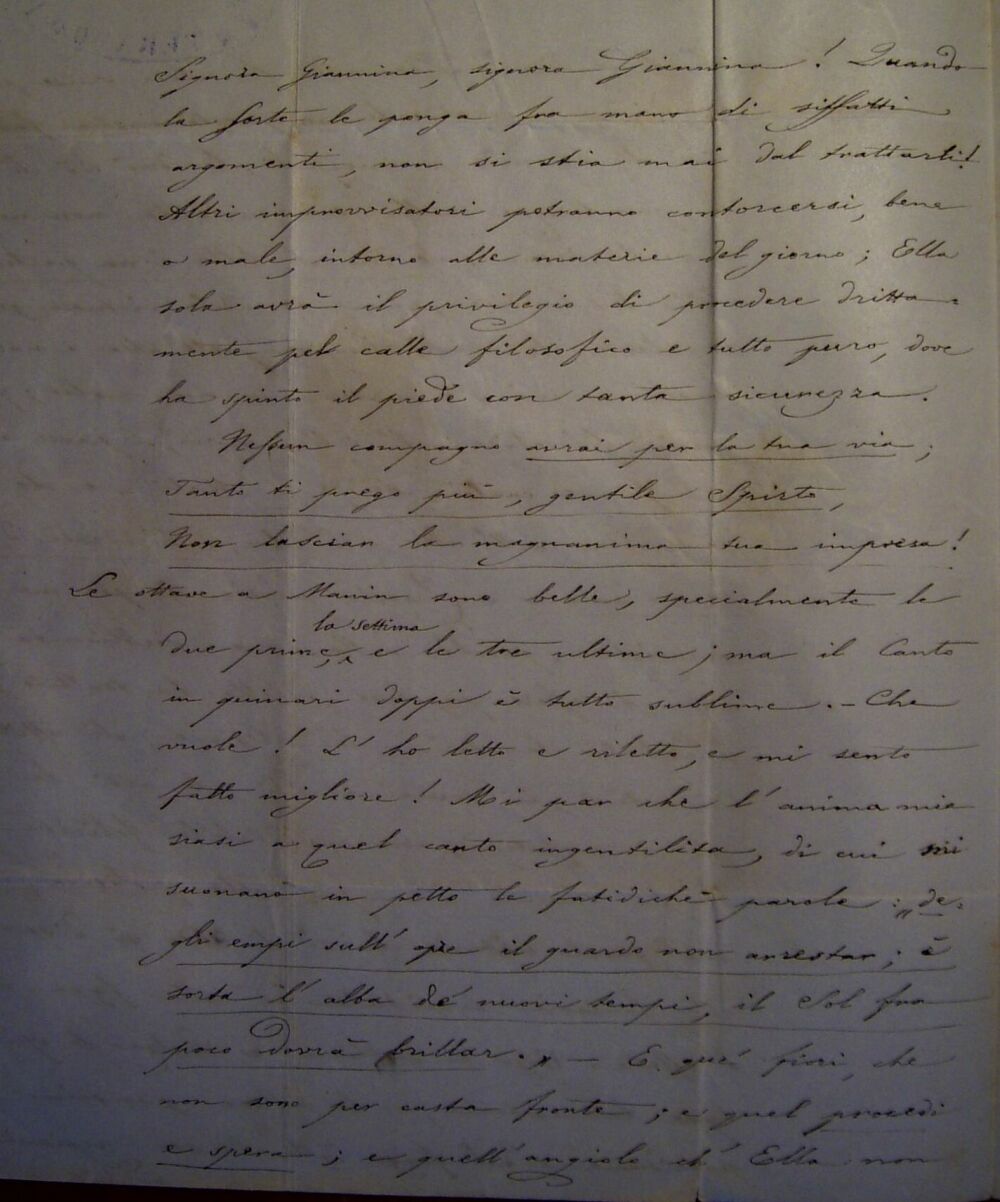 Signora Giannina, signora Giannina! Quando
la sorte le ponga fra mano di siffatti
argomenti, non si stia mai dal trattarli!
Altri improvvisatori potranno contorcersi, bene
o male, intorno alle materie del giorno; Ella
sola avrà il privilegio di procedere dritta=
mente pel calle filosofico e tutto puro, dove
ha spinto il piede con tanta sicurezza.
Nessun compagno avrai per la tua via;
Tanto ti prego più, gentile Spirto,
Non lasciar la magnanima tua impresa!
Le ottave a Manin sono belle, specialmente le
la settima
due prime, e le tre ultime; ma il Canto
in quinari doppi è tutto sublime. - Che
vuole! L'ho letto e riletto, e mi sento
fatto migliore! Mi par che l'anima mia
siasi a quel canto ingentilita, di cui mi
suonano in petto le fatidiche parole: „de=
gli empi sull'opre il guardo non arrestar; è
sorta l'alba de' nuovi tempi, il Sol fra
poco dovrà brillar." - E que' fiori, che
non sono per casta fronte; e quel procedi
e spera; e quell'angiolo ch'Ella non